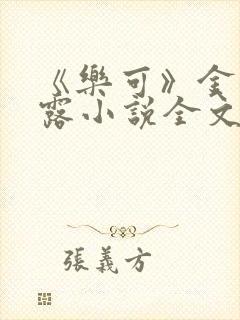 《樂可》金
露小說全文
張義方